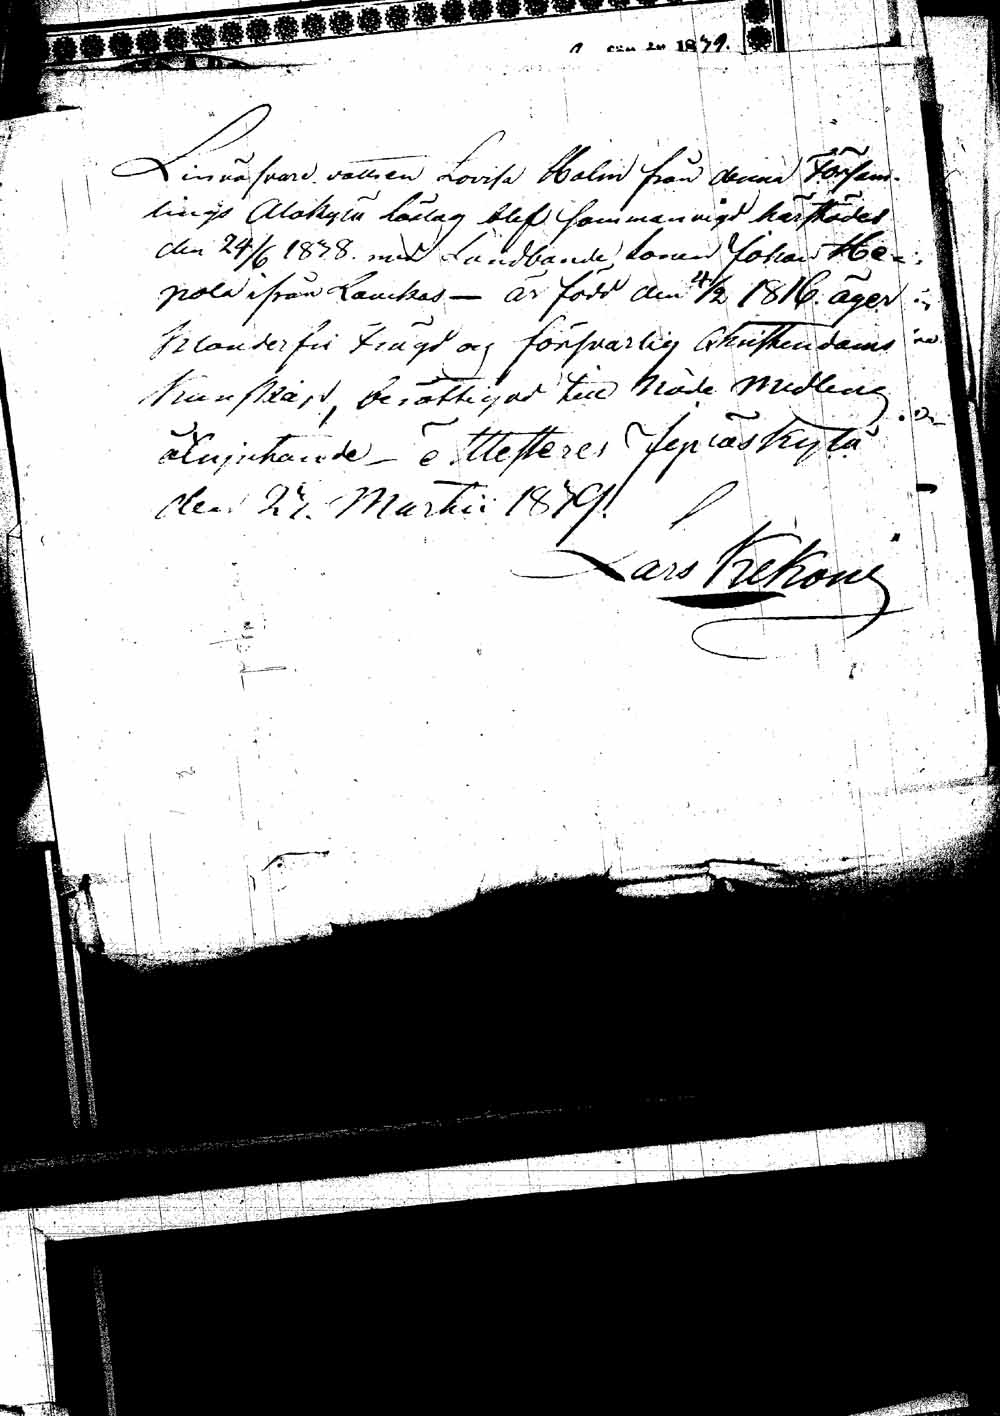 1879.
Linväfvare dottren Lovisa Holm från denna Församlings
Alakylä låstag blef sammanvigd härstädes
den 24/6 1838. med Landbonde sonen Johan He-
pola ifrån Laukas — är född den 4/2 1816. äger
klanderfri frägd og försvarlig Christendoms
kunskap, berättigad till Nåde medlens
åtnjutande — attesteres Jyväskylä
den 27. Martii 1879.
Lars Kekoni